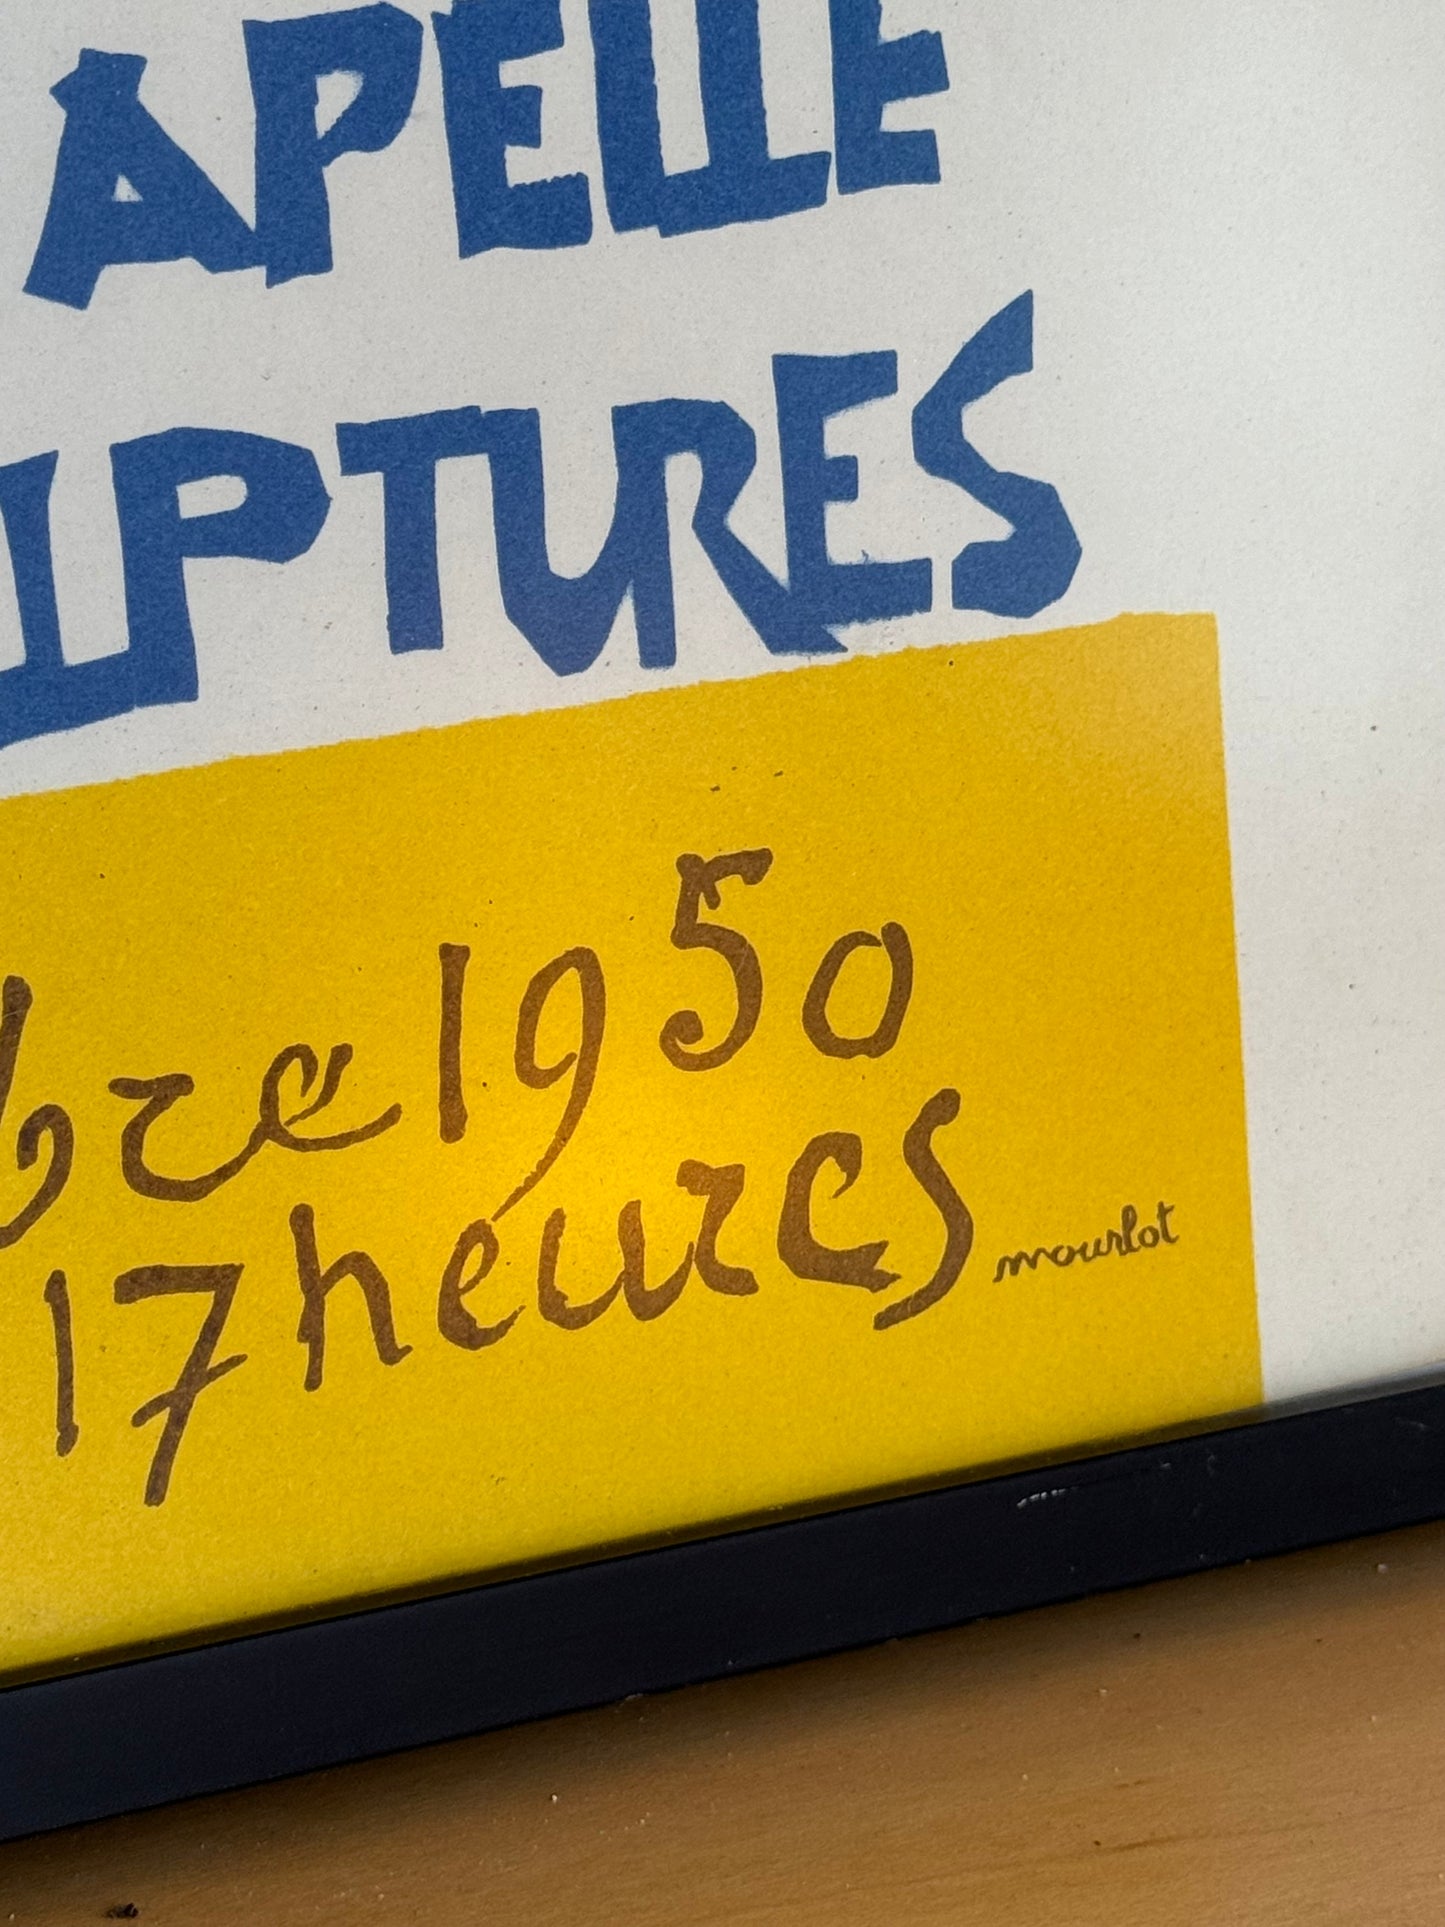 APELLE
LPTURES
bre 1950
17 heures
mourlot